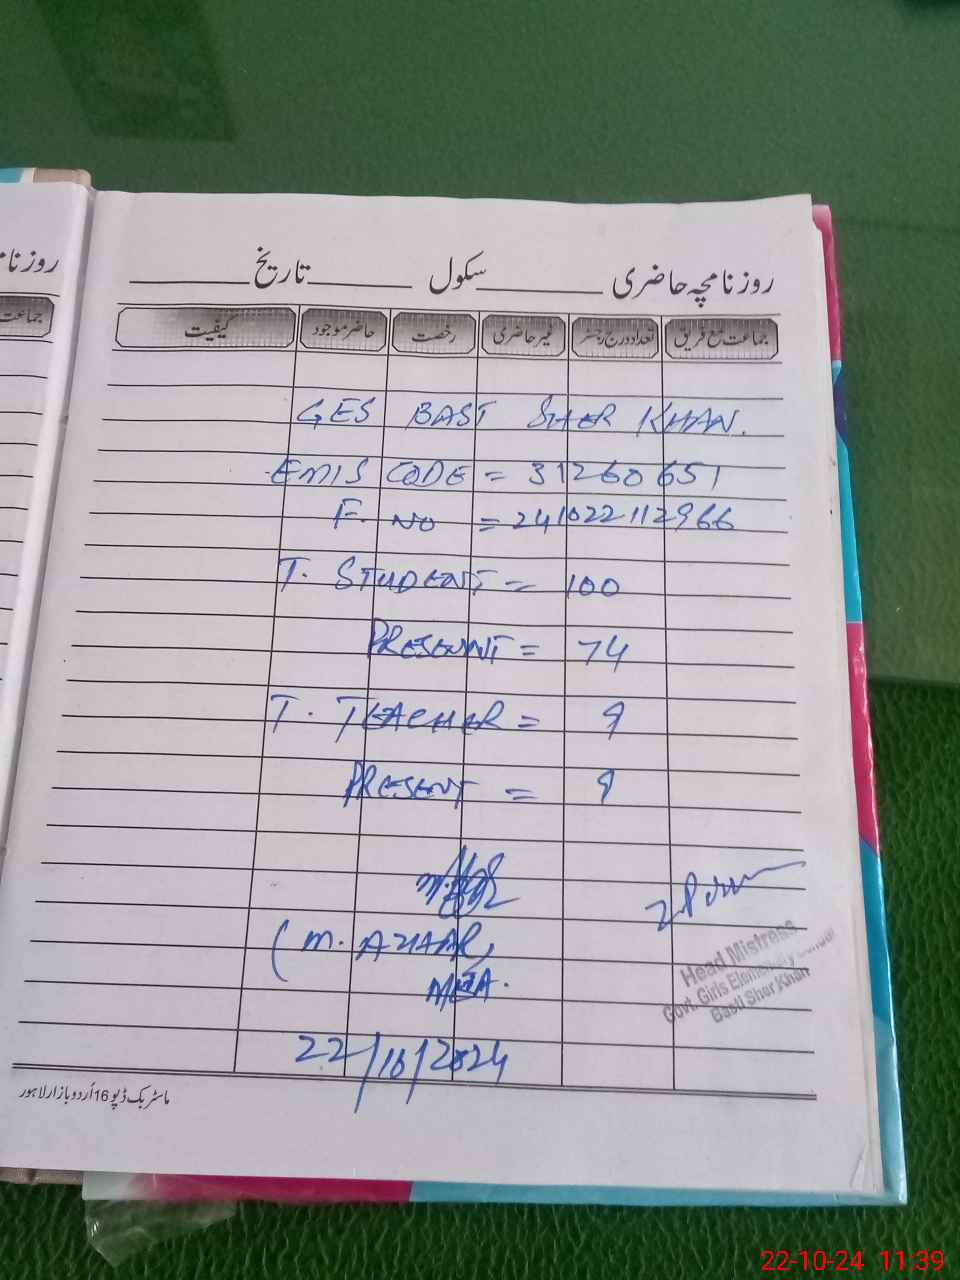 روزنامچہ حاضری ________ سکول ________ تاریخ ________
جماعت مع فریق تعداد درج رجسٹر غیر حاضری رخصت حاضر موجود کیفیت
GES BAST SHER KHAN.
EMIS CODE = 31260651
F. NO = 241022112966
T. STUDENT = 100
PRESENNT = 74
T. TEACHER = 9
PRESENT = 9
(M. AZHAR,
MEA.
Head Mistress
Govt. Girls Elementary School
Basti Sher Khan
22/10/2024
ماسٹر بک ڈپو 16 اُردو بازار لاہور
روزنا
جماعت
22-10-24 11:39